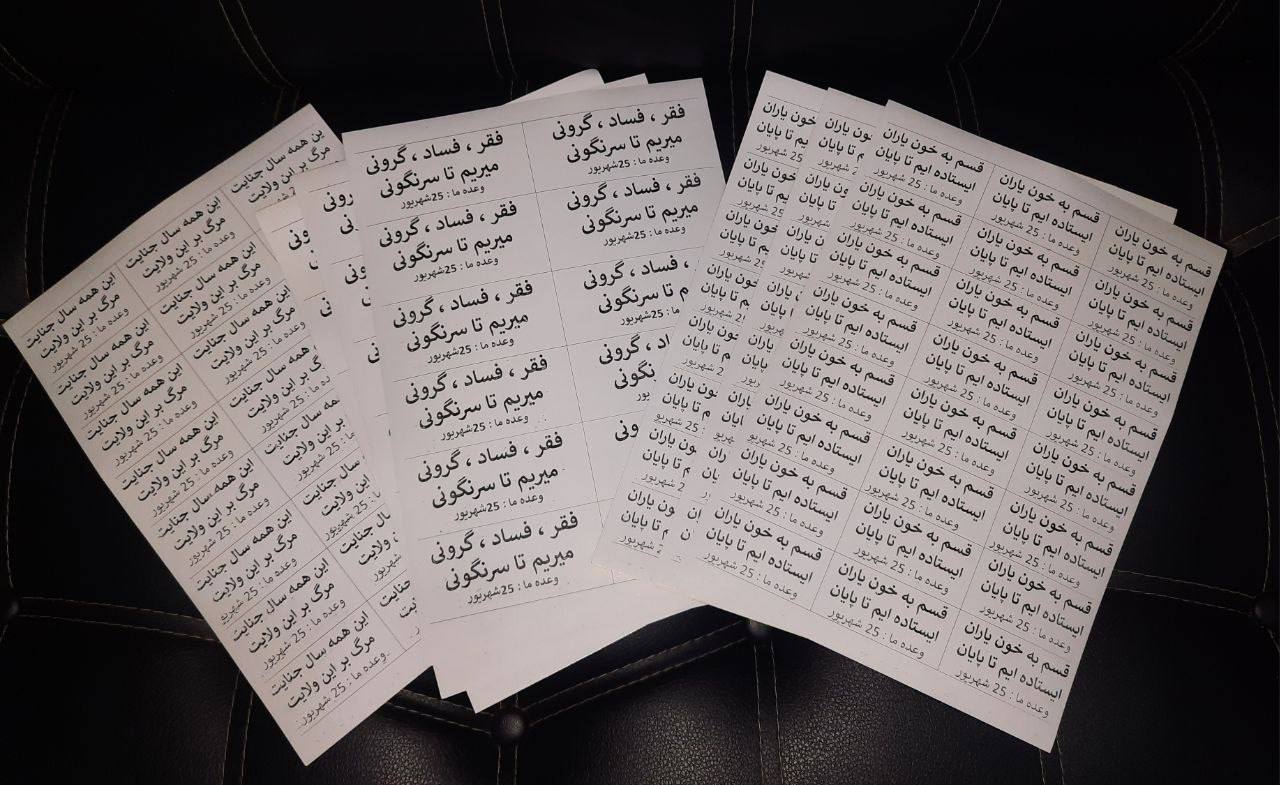 این همه سال جنایت
مرگ بر این ولایت
وعده ما : 25 شهریور
این همه سال جنایت
مرگ بر این ولایت
وعده ما : 25 شهریور
این همه سال جنایت
مرگ بر این ولایت
وعده ما : 25 شهریور
این همه سال جنایت
مرگ بر این ولایت
وعده ما : 25 شهریور
این همه سال جنایت
مرگ بر این ولایت
وعده ما : 25 شهریور
این همه سال جنایت
مرگ بر این ولایت
وعده ما : 25 شهریور
این همه سال جنایت
مرگ بر این ولایت
وعده ما : 25 شهریور
این همه سال جنایت
مرگ بر این ولایت
وعده ما : 25 شهریور
فقر ، فساد ، گرونی
میریم تا سرنگونی
وعده ما : 25شهریور
فقر ، فساد ، گرونی
میریم تا سرنگونی
وعده ما : 25شهریور
فقر ، فساد ، گرونی
میریم تا سرنگونی
وعده ما : 25شهریور
فقر ، فساد ، گرونی
میریم تا سرنگونی
وعده ما : 25شهریور
فقر ، فساد ، گرونی
میریم تا سرنگونی
وعده ما : 25شهریور
فقر ، فساد ، گرونی
میریم تا سرنگونی
وعده ما : 25شهریور
فقر ، فساد ، گرونی
میریم تا سرنگونی
وعده ما : 25شهریور
فقر ، فساد ، گرونی
میریم تا سرنگونی
وعده ما : 25شهریور
فقر ، فساد ، گرونی
میریم تا سرنگونی
وعده ما : 25شهریور
قسم به خون یاران
ایستاده ایم تا پایان
وعده ما : 25 شهریور
قسم به خون یاران
ایستاده ایم تا پایان
وعده ما : 25 شهریور
قسم به خون یاران
ایستاده ایم تا پایان
وعده ما : 25 شهریور
قسم به خون یاران
ایستاده ایم تا پایان
وعده ما : 25 شهریور
قسم به خون یاران
ایستاده ایم تا پایان
وعده ما : 25 شهریور
قسم به خون یاران
ایستاده ایم تا پایان
وعده ما : 25 شهریور
قسم به خون یاران
ایستاده ایم تا پایان
وعده ما : 25 شهریور
قسم به خون یاران
ایستاده ایم تا پایان
وعده ما : 25 شهریور
قسم به خون یاران
ایستاده ایم تا پایان
وعده ما : 25 شهریور
قسم به خون یاران
ایستاده ایم تا پایان
وعده ما : 25 شهریور
قسم به خون یاران
ایستاده ایم تا پایان
وعده ما : 25 شهریور
قسم به خون یاران
ایستاده ایم تا پایان
وعده ما : 25 شهریور
قسم به خون یاران
ایستاده ایم تا پایان
وعده ما : 25 شهریور
قسم به خون یاران
ایستاده ایم تا پایان
وعده ما : 25 شهریور
قسم به خون یاران
ایستاده ایم تا پایان
وعده ما : 25 شهریور
قسم به خون یاران
ایستاده ایم تا پایان
وعده ما : 25 شهریور
قسم به خون یاران
ایستاده ایم تا پایان
وعده ما : 25 شهریور
قسم به خون یاران
ایستاده ایم تا پایان
وعده ما : 25 شهریور
قسم به خون یاران
ایستاده ایم تا پایان
وعده ما : 25 شهریور
قسم به خون یاران
ایستاده ایم تا پایان
وعده ما : 25 شهریور
قسم به خون یاران
ایستاده ایم تا پایان
وعده ما : 25 شهریور
قسم به خون یاران
ایستاده ایم تا پایان
وعده ما : 25 شهریور
قسم به خون یاران
ایستاده ایم تا پایان
وعده ما : 25 شهریور
قسم به خون یاران
ایستاده ایم تا پایان
وعده ما : 25 شهریور